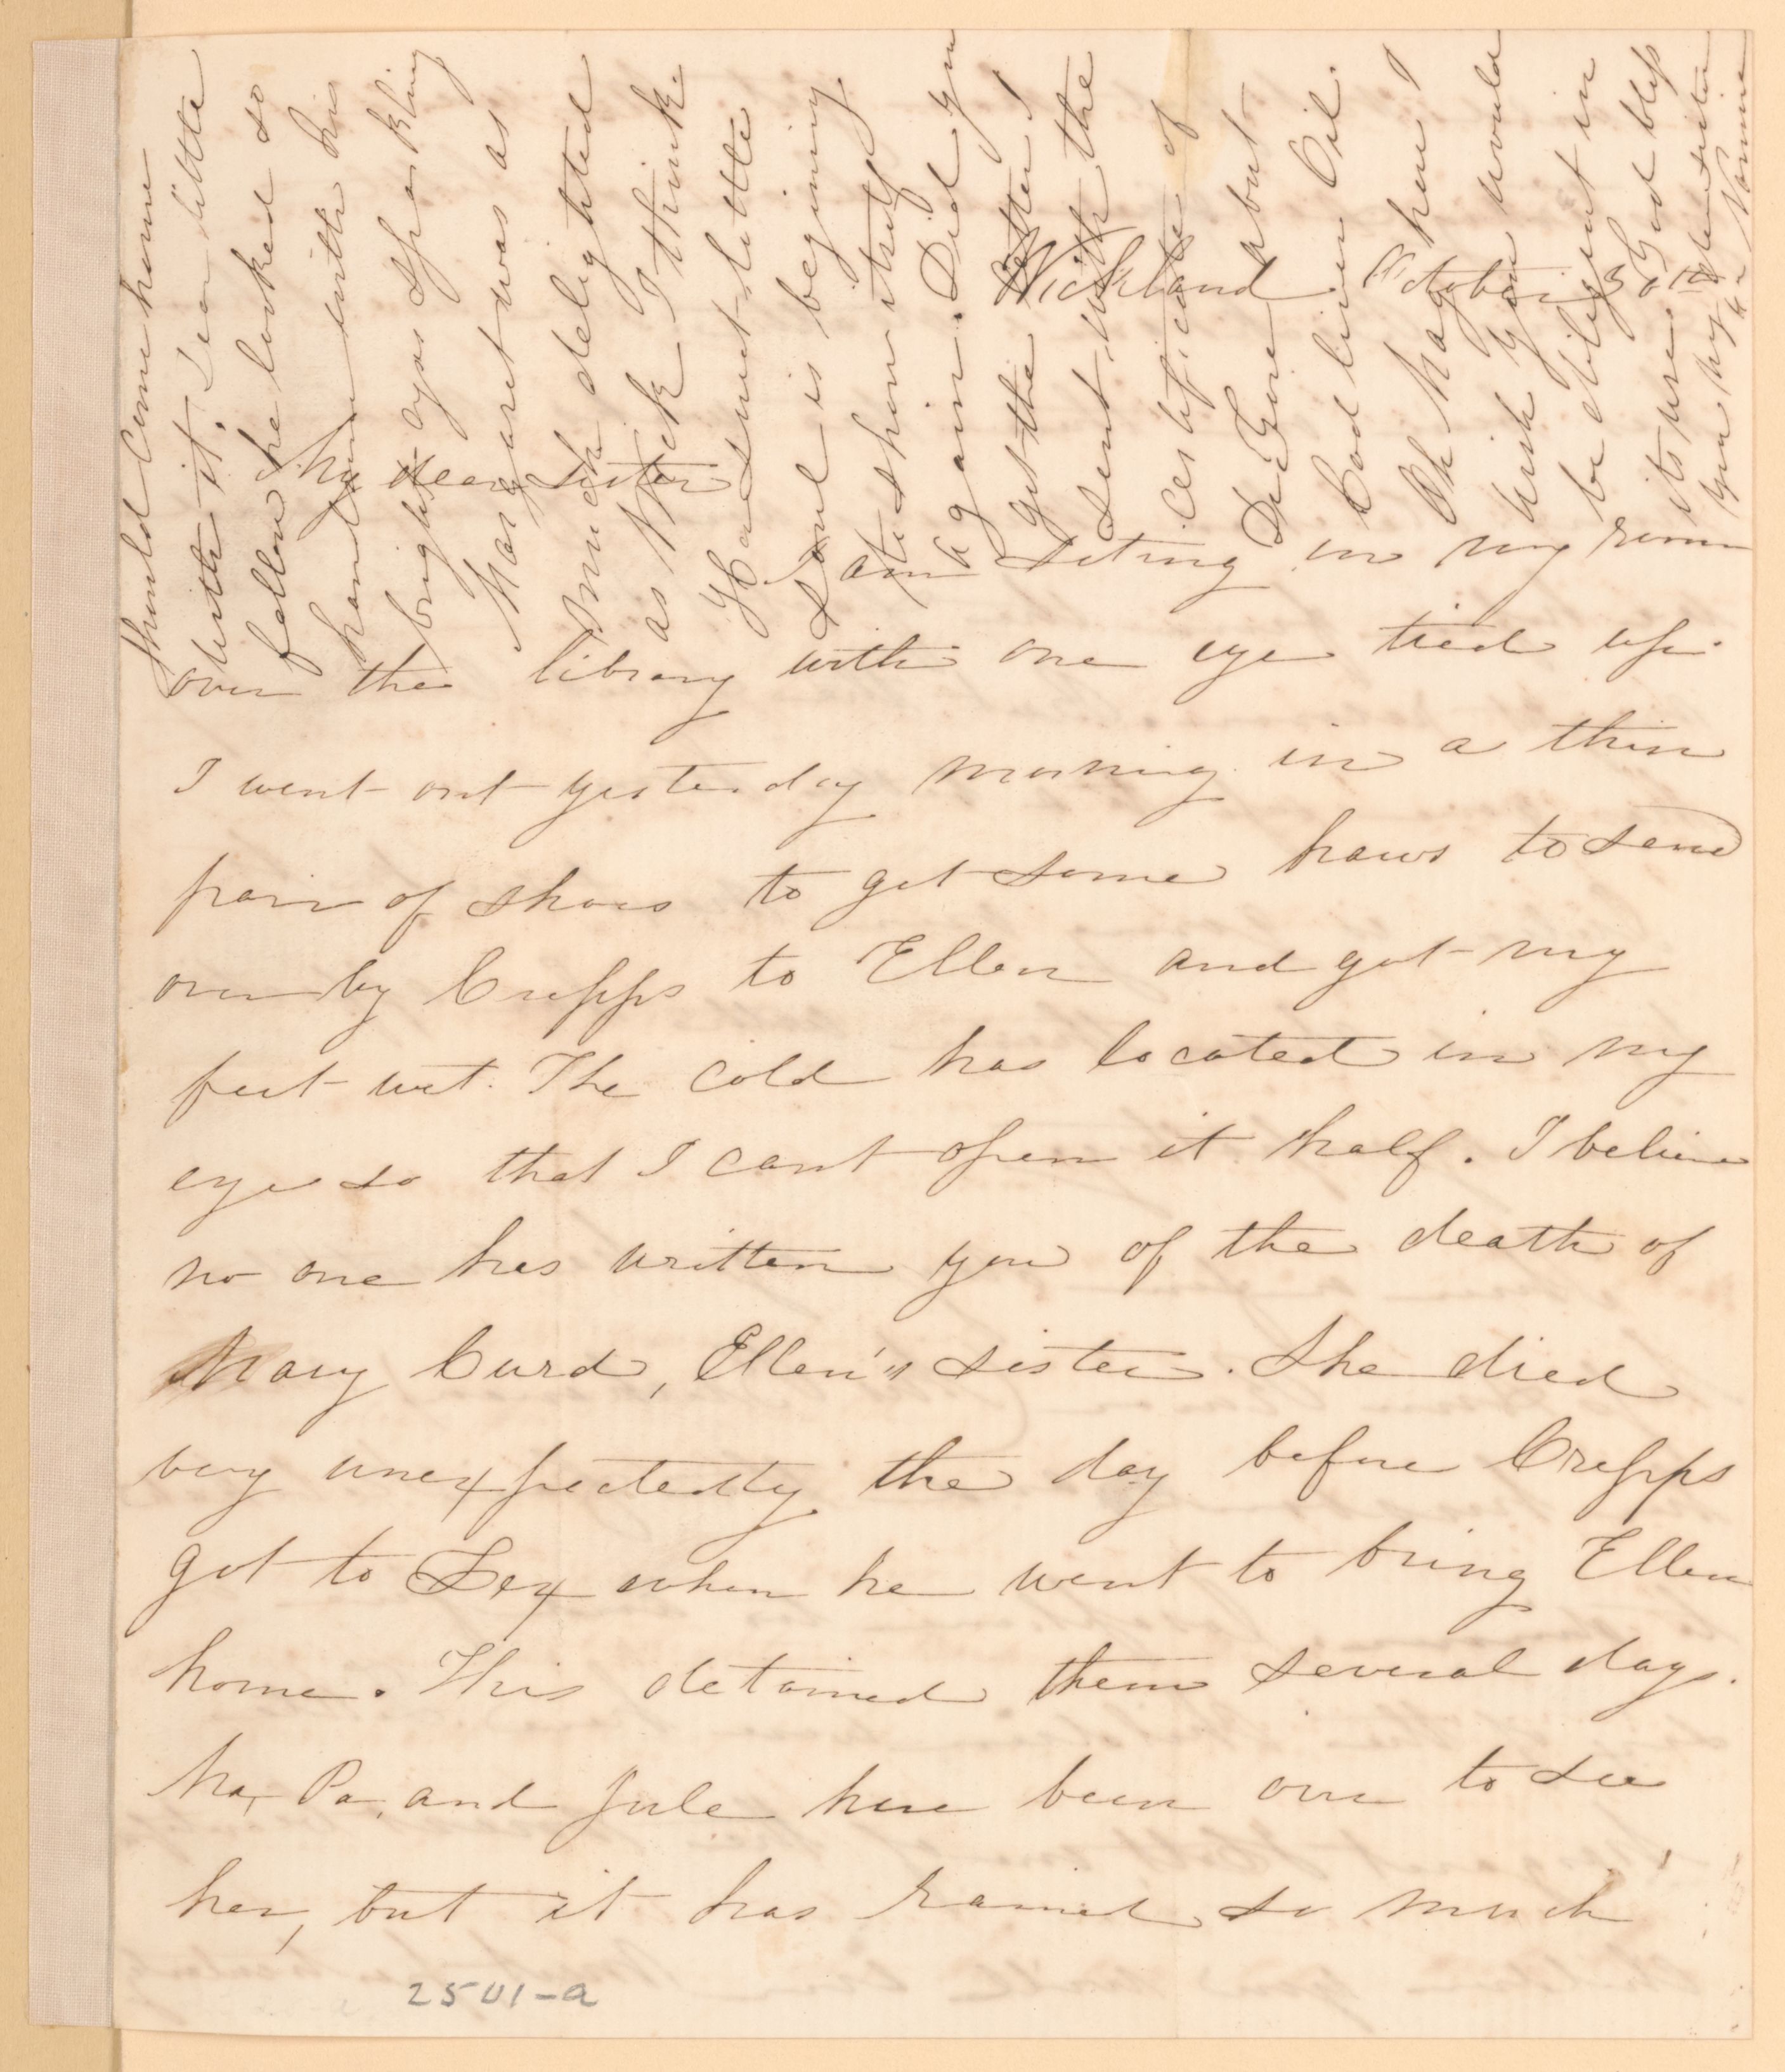 Wickland October 30th
My dear Sister
I am siting in my room
over the library with one eye tied up.
I went out yesterday morning in a thin
pair of shoes to get some haws to send
over by Cripps to Ellen and got my
feet wet. The cold has located in my
eye so that I cant open it half. I believe
no one has written you of the death of
Mary Curd, Ellen's sister. She died
very unexpectedly the day before Cripps
got to Lex when he went to bring Ellen
home. This detained them several days.
Ma, Pa, and Jule have been over to see
her, but it has rained so much
should come home
with it. Dear little
fellow he looked so
handsome with his
bright eyes sparkling
Margaret was as
much delighted
as Nick I think
Her sweet little
soul is begining
to show itself
again. Did you
get the letter I
sent with the
certificate of
De Gine about
Cod liver Oil.
Oh Mag how I
wish you would
be diligent in
its use. God bless
you my
Nannie
2501-a